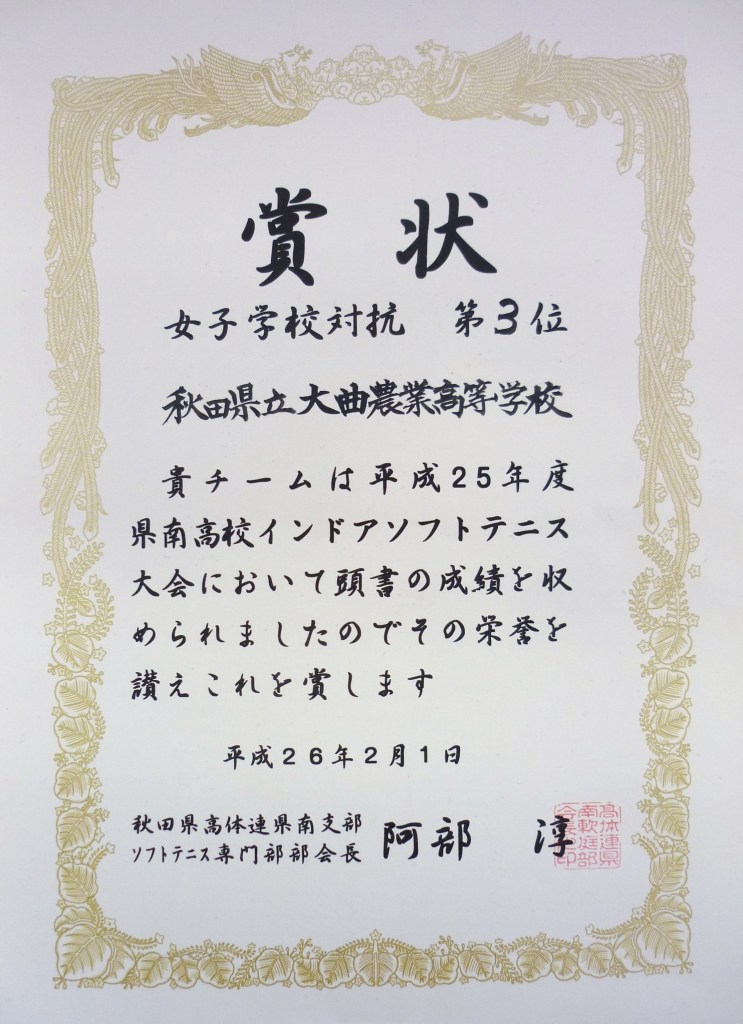 賞状
女子学校対抗 第3位
秋田県立大曲農業高等学校
貴チームは平成25年度
県南高校インドアソフトテニス
大会において頭書の成績を収
められましたのでその栄誉を
讃えこれを賞します
平成26年2月1日
秋田県高体連県南支部
ソフトテニス専門部部会長 阿部 淳